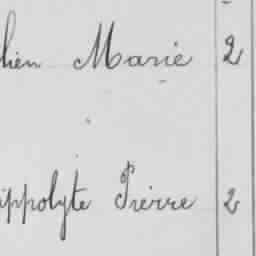 lien Marie 2
ippolyte Pierre 2